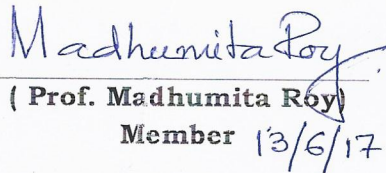 Madhumita Roy
( Prof. Madhumita Roy)
Member 13/6/17